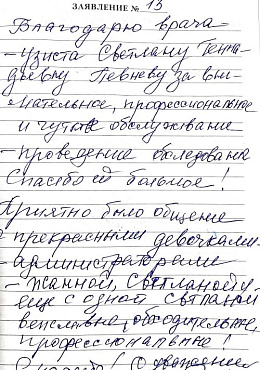 ЗАЯВЛЕНИЕ № 13
Благодарю врача
- узиста Светлану Генна-
дьевну Певневу за вни-
мательное, профессиональное
и чуткое обслуживание
- проведение
Спасибо ей большое!
Приятно было общение
с прекрасными девочками-
- администраторами
- Жанной, Светланой и
еще с одной Светланой
вежливые, обходительные,
профессиональные!
Спасибо! С уважением